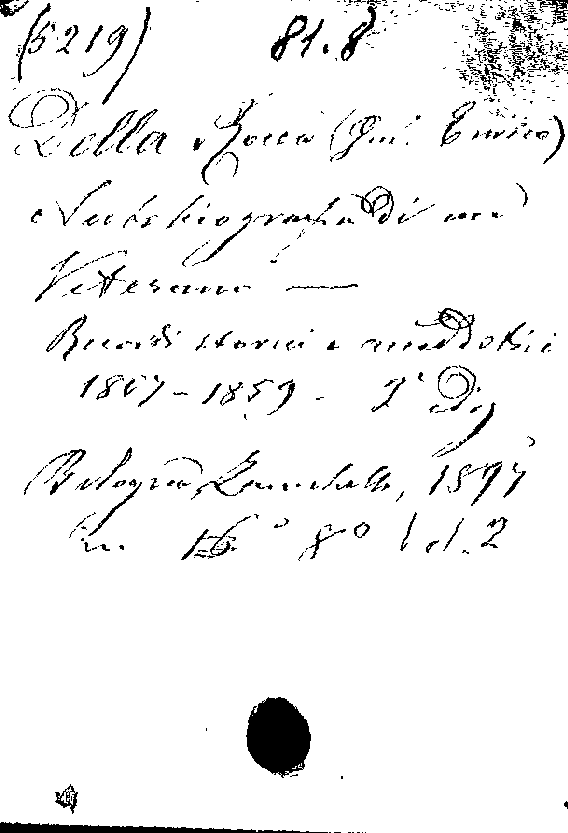 (5219) 81.8
Della Rocca (Gen. Enrico)
Autobiografia di un
Veterano —
Ricordi storici e aneddotici
1807 - 1859 - 2ª
Bologna, Zanichelli, 1897
in 16° 8° Vol. 2